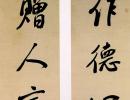 作德
贈人